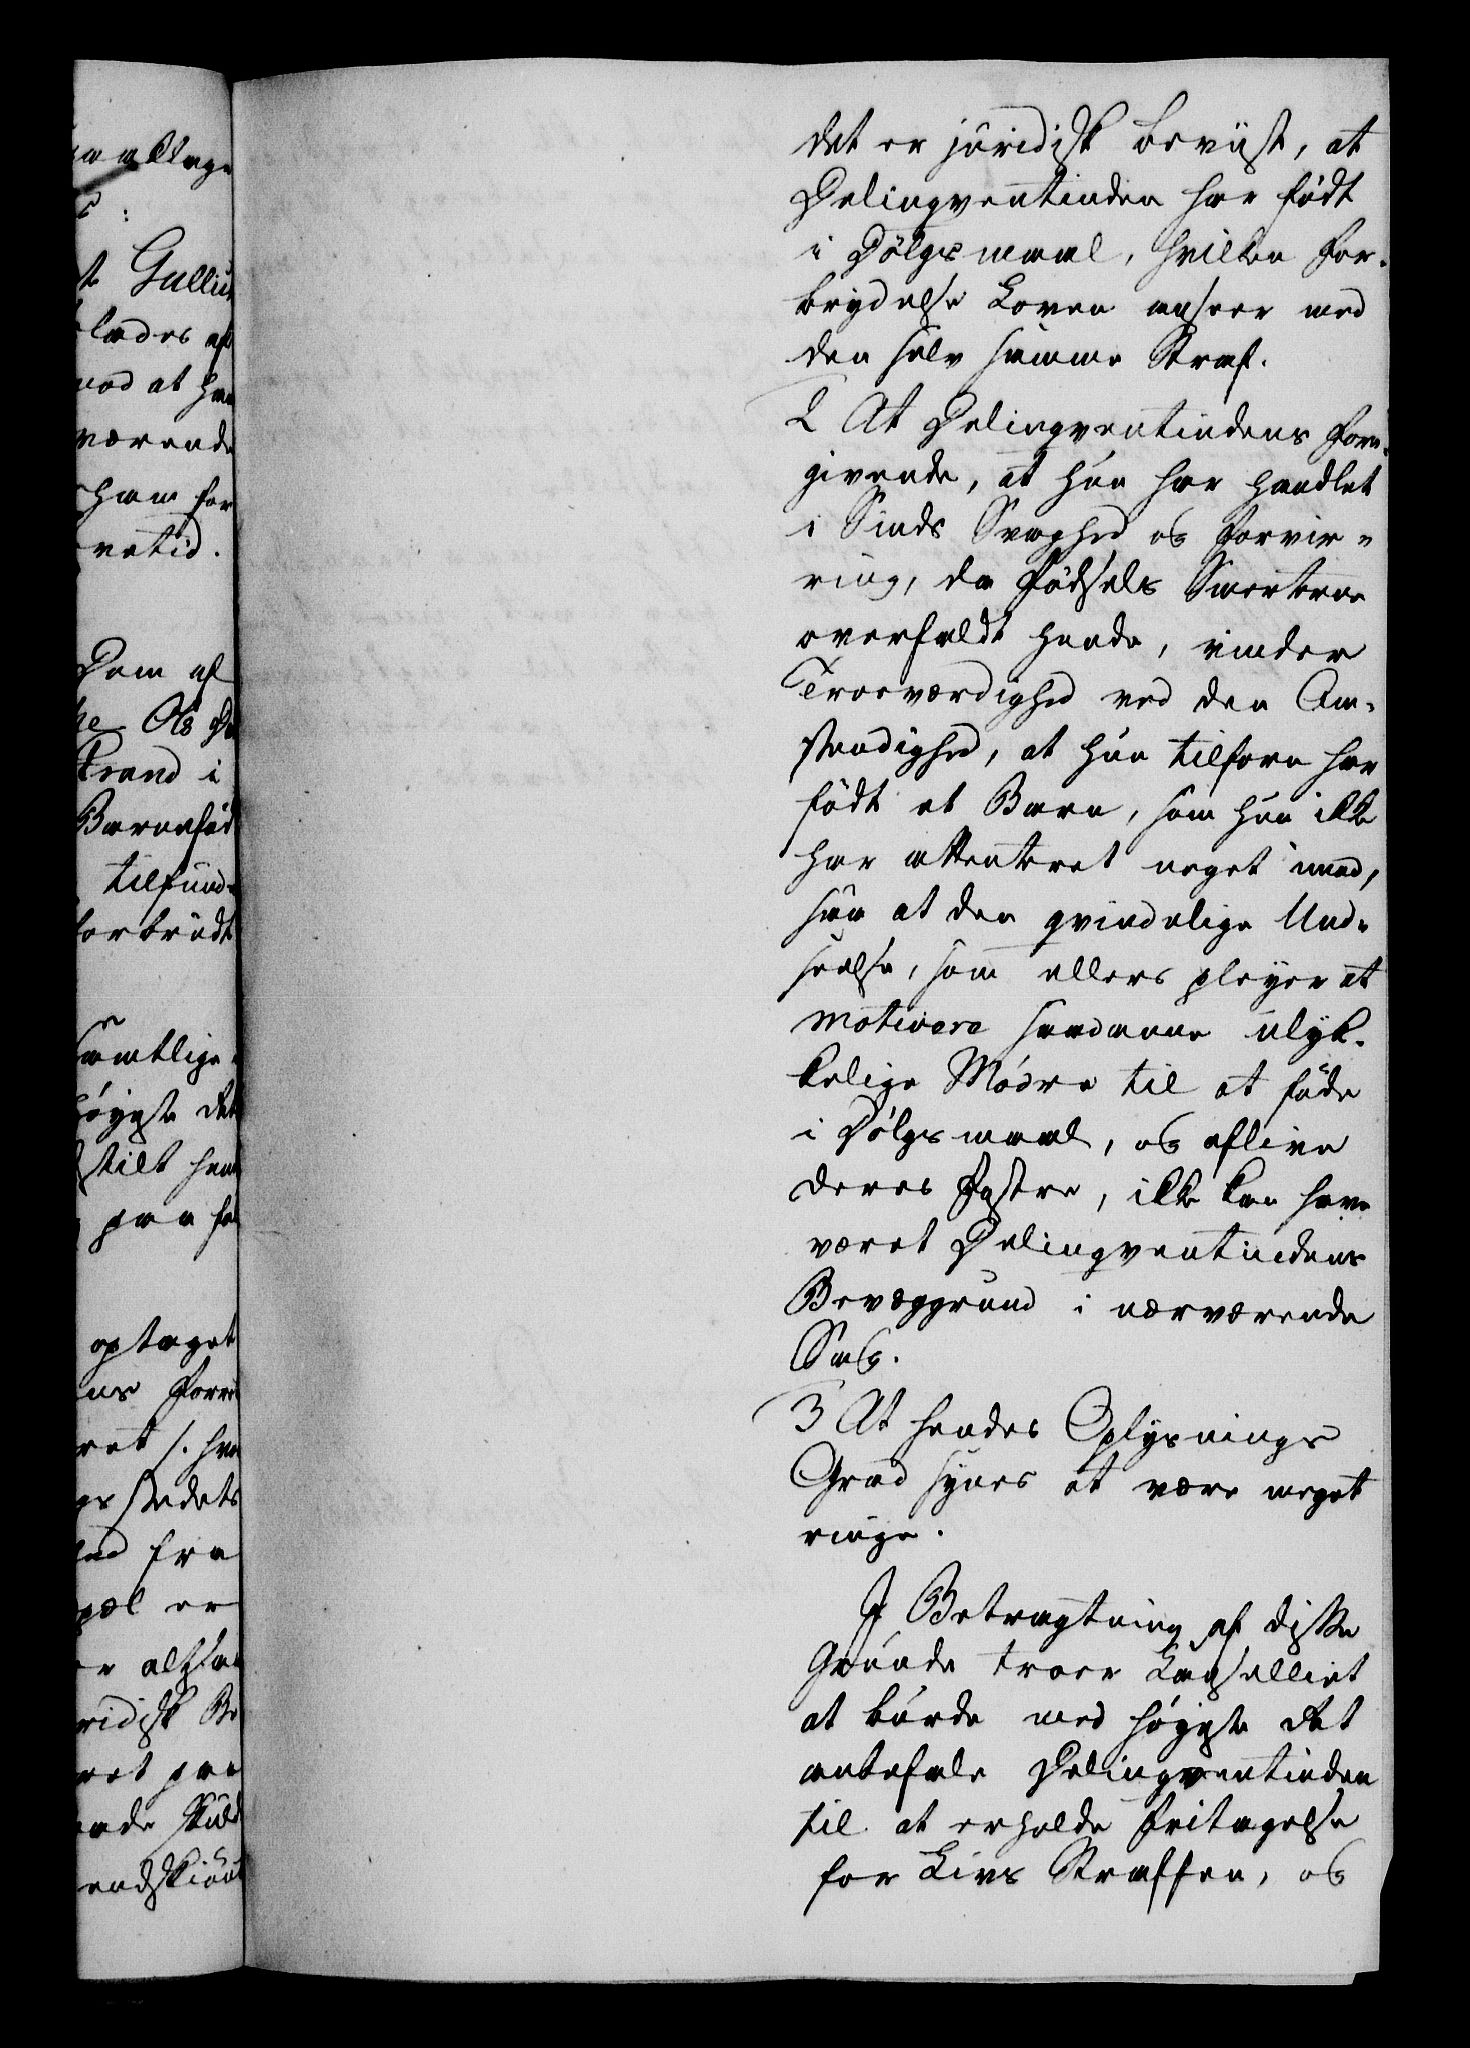 aaklage
t Gulliu
lades af
mod at han
værende
ham for
vetid.
Dom af
he Ole Da
trand i
Barnefød
tilfund-
forbrudt
samtlige
høyeste det
stilt han
paa fo
optaget
ns Forr
ret /. hva
gs stedets
ud fra
pæl er
er altsaa
ridisk Be
ret paa
ende Skuld
endskiönt
det er juridisk beviist, at
Delinqventinden har født
i Dølgsmaal, hvilken For-
brydelse Loven anseer med
den selv samme Straf.
2 At Delinqventindens Fore-
givende, at hun har handlet
i Sinds Svaghed og Forvir-
ring, da Fødsels Smerterne
overfaldt hende, vinder
Troeværdighed ved den Om-
stændighed, at hun tilforn har
født et Barn, som hun ikke
har attenteret noget imod,
saa at den qvindelige Und-
seelse, som ellers pleyer at
motivere saadanne ulyk-
kelige Mødre til at føde
i Dølgsmaal, og aflive
deres Fostre, ikke kan have
været Delinqventindens
Bevæggrund i nærværende
Sag.
3 At hendes Oplysnings
Grad synes at være meget
ringe.
I Betragtning af disse
Grunde troer Kancelliet
at burde med høyeste det
anbefale Delinqventinden
til at erholde Fritagelse
for Livs Straffen, og